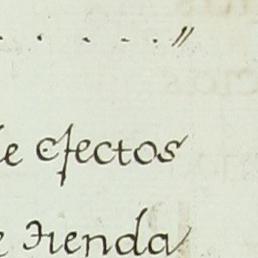 . . . . . "
de efectos
e Tienda